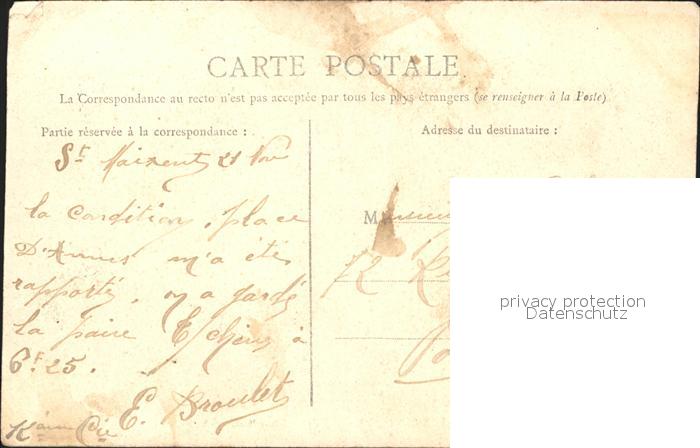 CARTE POSTALE
La Correspondance au recto n'est pas acceptée par tous les pays étrangers (se renseigner à la Poste)
Partie réservée à la correspondance :
Adresse du destinataire :
St Maixent 21 Nov
la condition, place
D'Armes m'a été
rapporté, on a gardé
la paire à
6f.25.
E. Broulet
Cie
Monsieur
72
privacy protection
Datenschutz